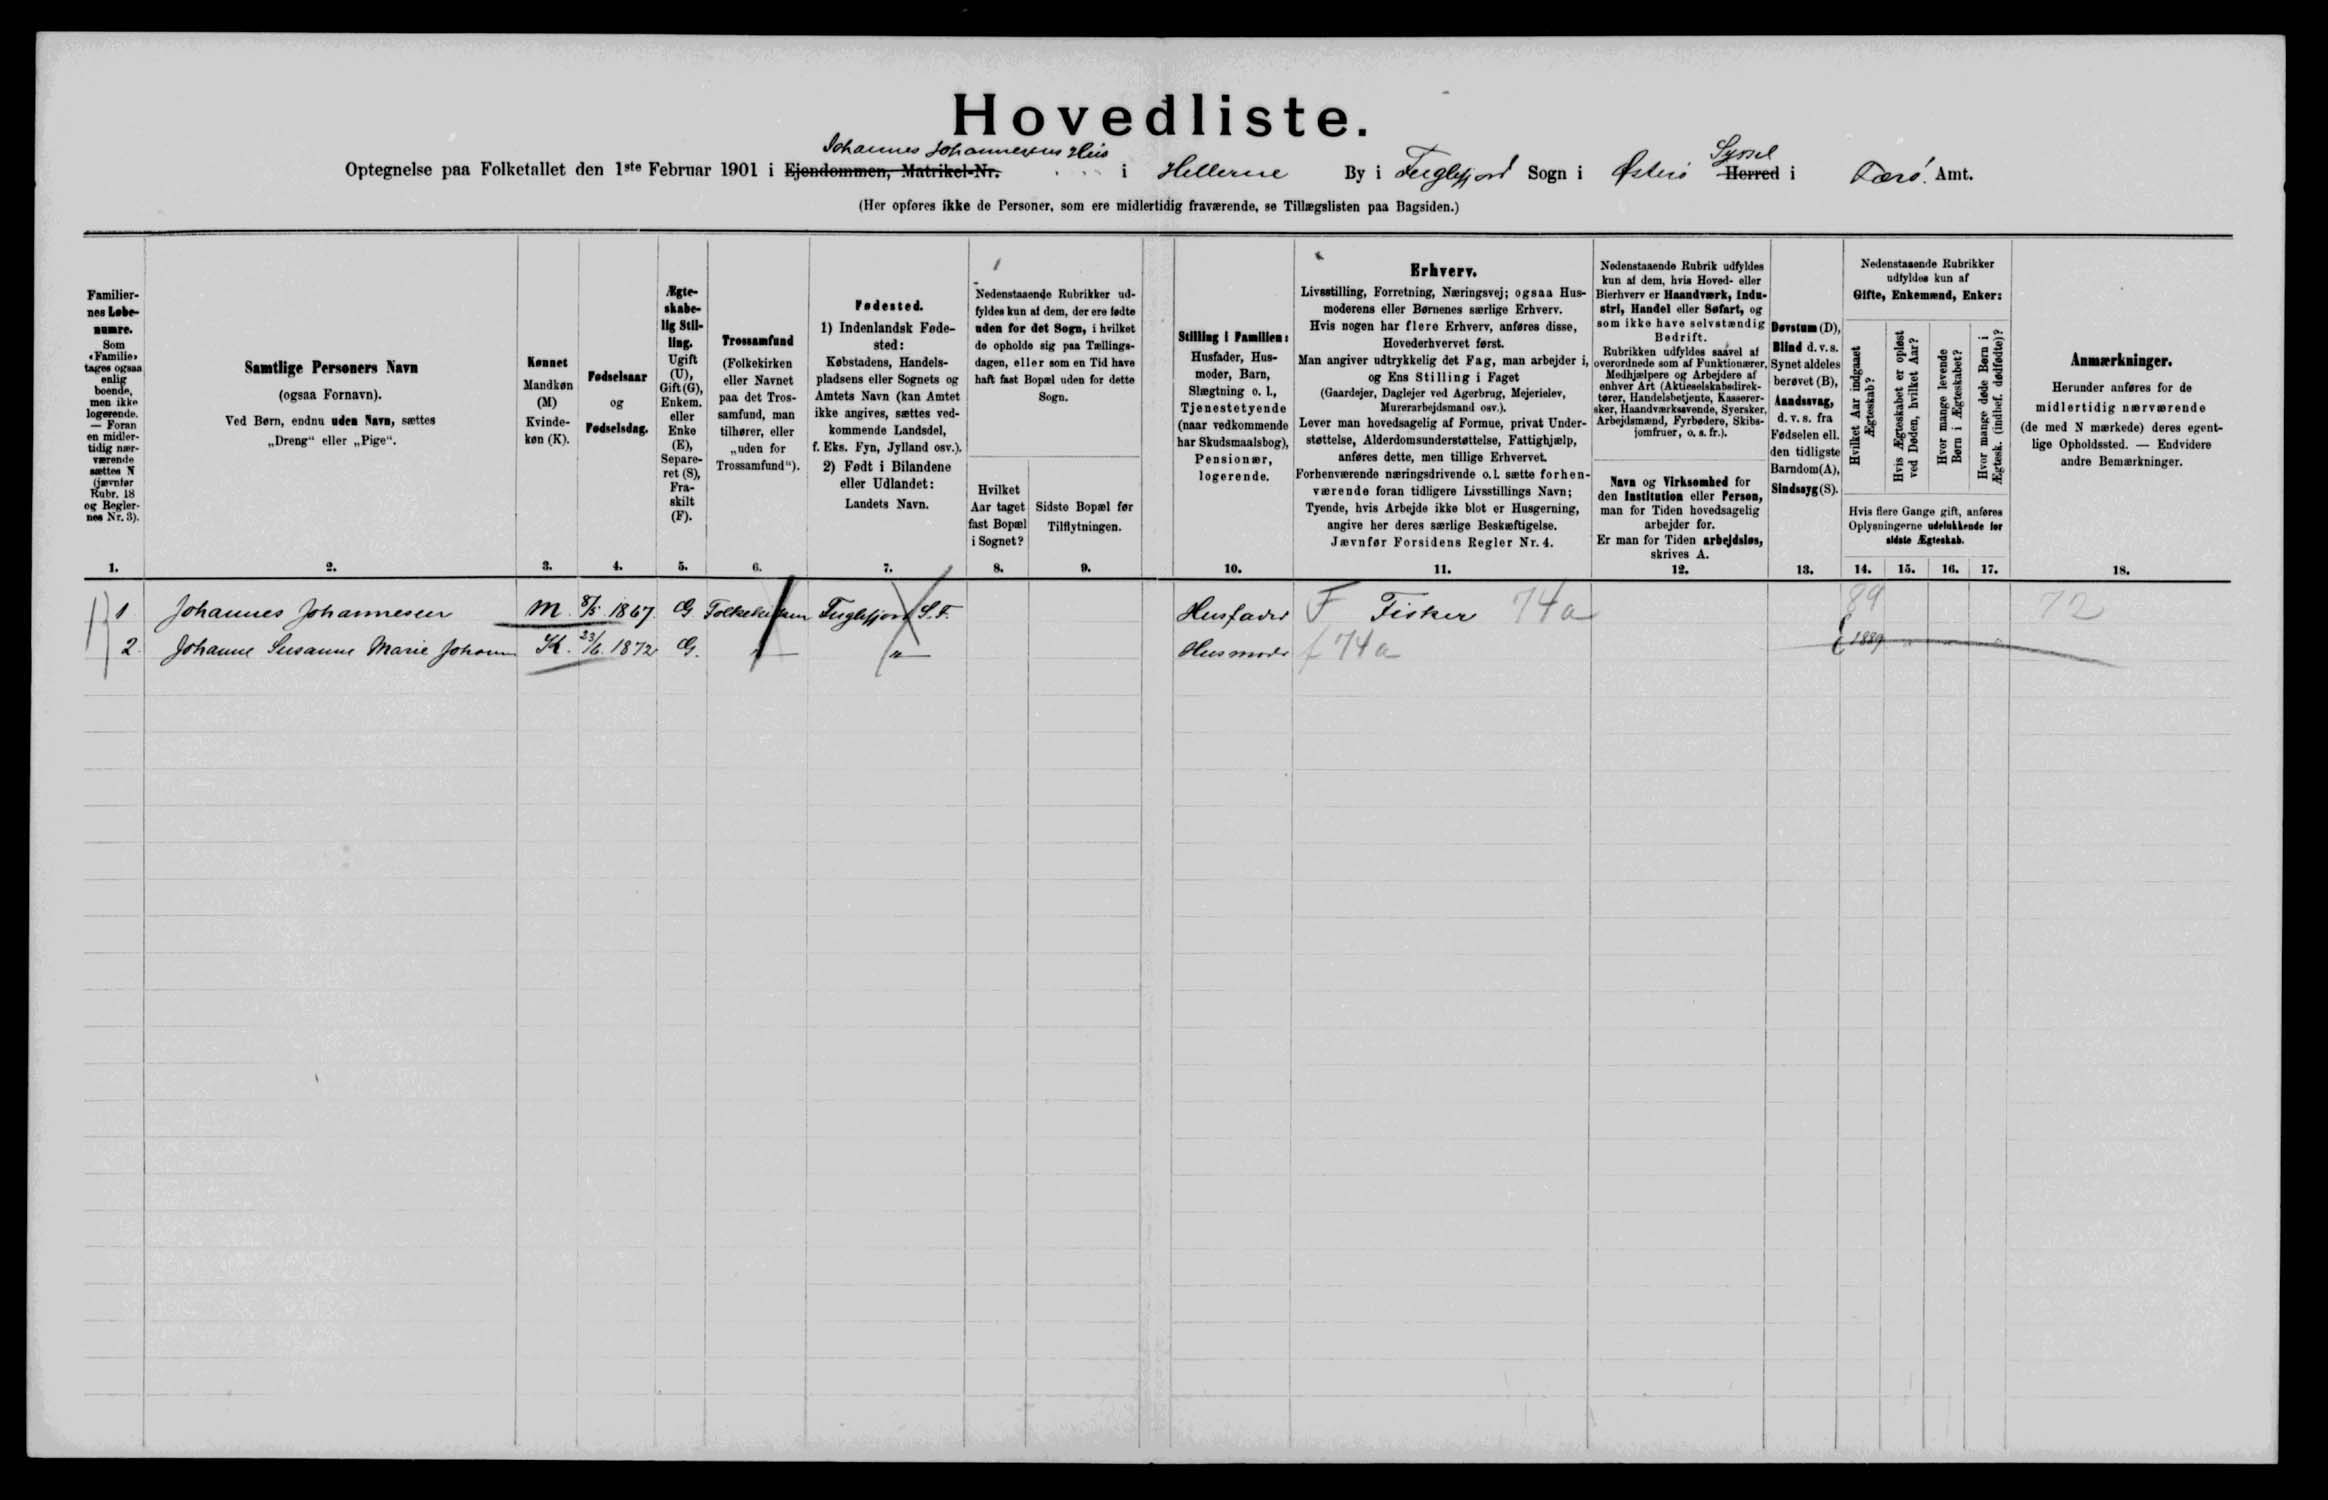 Hovedliste.
Johannes Johannesens Hus
Optegnelse paa Folketallet den 1ste Februar 1901 i Ejendommen, Matrikel-Nr. i Hellerne By i Fuglefjord Sogn i Østerø Herred i Færø. Amt.
Syssel
(Her opføres ikke de Personer, som ere midlertidig fraværende, se Tillægslisten paa Bagsiden.)
Familier-
nes Løbe-
numre.
Som
«Familie»
tages ogsaa
enlig
boende,
men ikke
logerende.
— Foran
en midler-
tidig nær-
værende
sættes N
(jævnfør
Rubr. 18
og Regler-
nes Nr. 3).
1.
Samtlige Personers Navn
(ogsaa Fornavn).
Ved Børn, endnu uden Navn, sættes
„Dreng“ eller „Pige“.
2.
Kønnet
Mandkøn
(M)
Kvinde-
køn (K).
3.
Fødselsaar
og
Fødselsdag.
4.
Ægte-
skabe-
lig Stil-
ling.
Ugift
(U),
Gift (G),
Enkem.
eller
Enke
(E),
Separe-
ret (S),
Fra-
skilt
(F).
5.
Trossamfund
(Folkekirken
eller Navnet
paa det Tros-
samfund, man
tilhører, eller
„uden for
Trossamfund“).
6.
Fødested.
1) IndenlandskFøde-
sted:
Købstadens, Handels-
pladsens eller Sognets og
Amtets Navn (kan Amtet
ikke angives, sættes ved-
kommende Landsdel,
f. Eks. Fyn, Jylland osv.).
2) Født i Bilandene
eller Udlandet:
Landets Navn.
7.
Nedenstaaende Rubrikker ud-
fyldes kun af dem, der ere fødte
uden for det Sogn, i hvilket
de opholde sig paa Tællings-
dagen, eller som en Tid have
haft fast Bopæl uden for dette
Sogn.
Hvilket
Aar taget
fast Bopæl
i Sognet?
8.
Sidste Bopæl før
Tilflytningen.
9.
Stilling i Familien:
Husfader, Hus-
moder, Barn,
Slægtning o. l.,
Tjenestetyende
(naar vedkommende
har Skudsmaalsbog),
Pensionær,
logerende.
10.
Erhverv.
Livsstilling, Forretning, Næringsvej; ogsaa Hus-
moderens eller Børnenes særlige Erhverv.
Hvis nogen har flere Erhverv, anføres disse,
Hovederhvervet først.
Man angiver udtrykkelig det Fag, man arbejder i,
og Ens Stilling i Faget
(Gaardejer, Daglejer ved Agerbrug, Mejerielev,
Murerarbejdsmand osv.).
Lever man hovedsagelig af Formue, privat Under-
støttelse, Alderdomsunderstøttelse, Fattighjælp,
anføres dette, men tillige Erhvervet.
Forhenværende næringsdrivende o. l. sætte forhen-
værende foran tidligere Livsstillings Navn;
Tyende, hvis Arbejde ikke blot er Husgerning,
angive her deres særlige Beskæftigelse.
Jævnfør Forsidens Regler Nr. 4.
11.
Nedenstaaende Rubrik udfyldes
kun af dem, hvis Hoved- eller
Bierhverv er Haandværk, Indu-
stri, Handel eller Søfart, og
som ikke have selvstændig
Bedrift.
Rubrikken udfyldes saavel af
overordnede som af Funktionærer,
Medhjælpere og Arbejdere af
enhver Art (Aktieselskabsdirek-
tører, Handelsbetjente, Kasserer-
sker, Haandværkssvende, Syersker,
Arbejdsmænd, Fyrbødere, Skibs-
jomfruer, o. s. fr.).
Navn og Virksomhed for
den Institution eller Person,
man for Tiden hovedsagelig
arbejder for.
Er man for Tiden arbejdsløs,
skrives A.
12.
Døvstum (D),
Blind d. v. s.
Synet aldeles
berøvet (B),
Aandssvag,
d. v. s. fra
Fødselen ell.
den tidligste
Barndom (A),
Sindssyg (S).
13.
Nedenstaaende Rubrikker
udfyldes kun af
Gifte, Enkemænd, Enker:
Hvilket Aar indgaaet
Ægteskab?
Hvis Ægteskabet er opløst
ved Døden, hvilket Aar?
Hvor mange levende
Børn i Ægteskabet?
Hvor mange døde Børn i
Ægtesk. (indbef. dødfødte)?
Hvis flere Gange gift, anføres
Oplysningerne udelukkende for
sidste Ægteskab.
14. 15. 16. 17.
Anmærkninger.
Herunder anføres for de
midlertidig nærværende
(de med N mærkede) deres egent-
lige Opholdssted. — Endvidere
andre Bemærkninger.
18.
1 Johannes Johannesen M. 8/5 1867. G Folkekirken Fuglefjord S. F. Husfader F Fisker 74a 89 72
2. Johanne Susanne Marie Johann K. 23/6. 1872 G. " " Husmoder f 74a 1889 " "